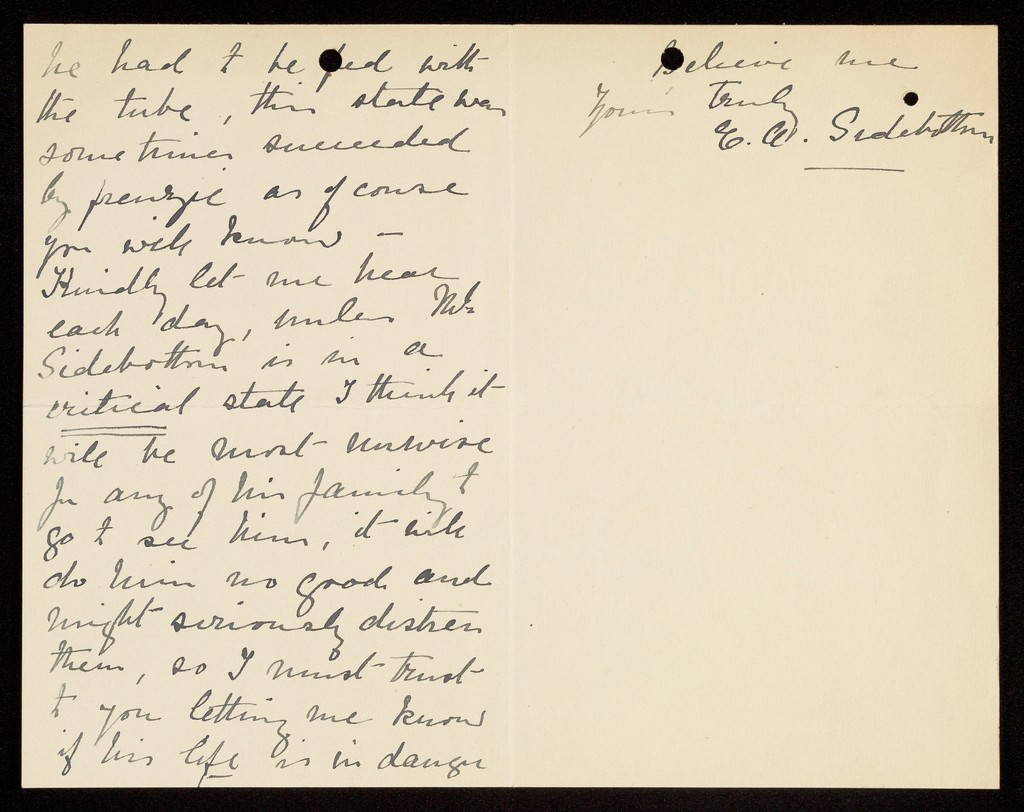 he had to be fed with
the tube, this state was
sometimes succeeded
by frenzie as of course
you will know —
Kindly let me hear
each day, unless Mr
Sidebottom is in a
critical state I think it
will be most unwise
for any of his family to
go to see him, it will
do him no good and
might seriously distress
them, so I must trust
to you letting me know
if his life is in danger
Believe me
Yours truly
E. A. Sidebottom